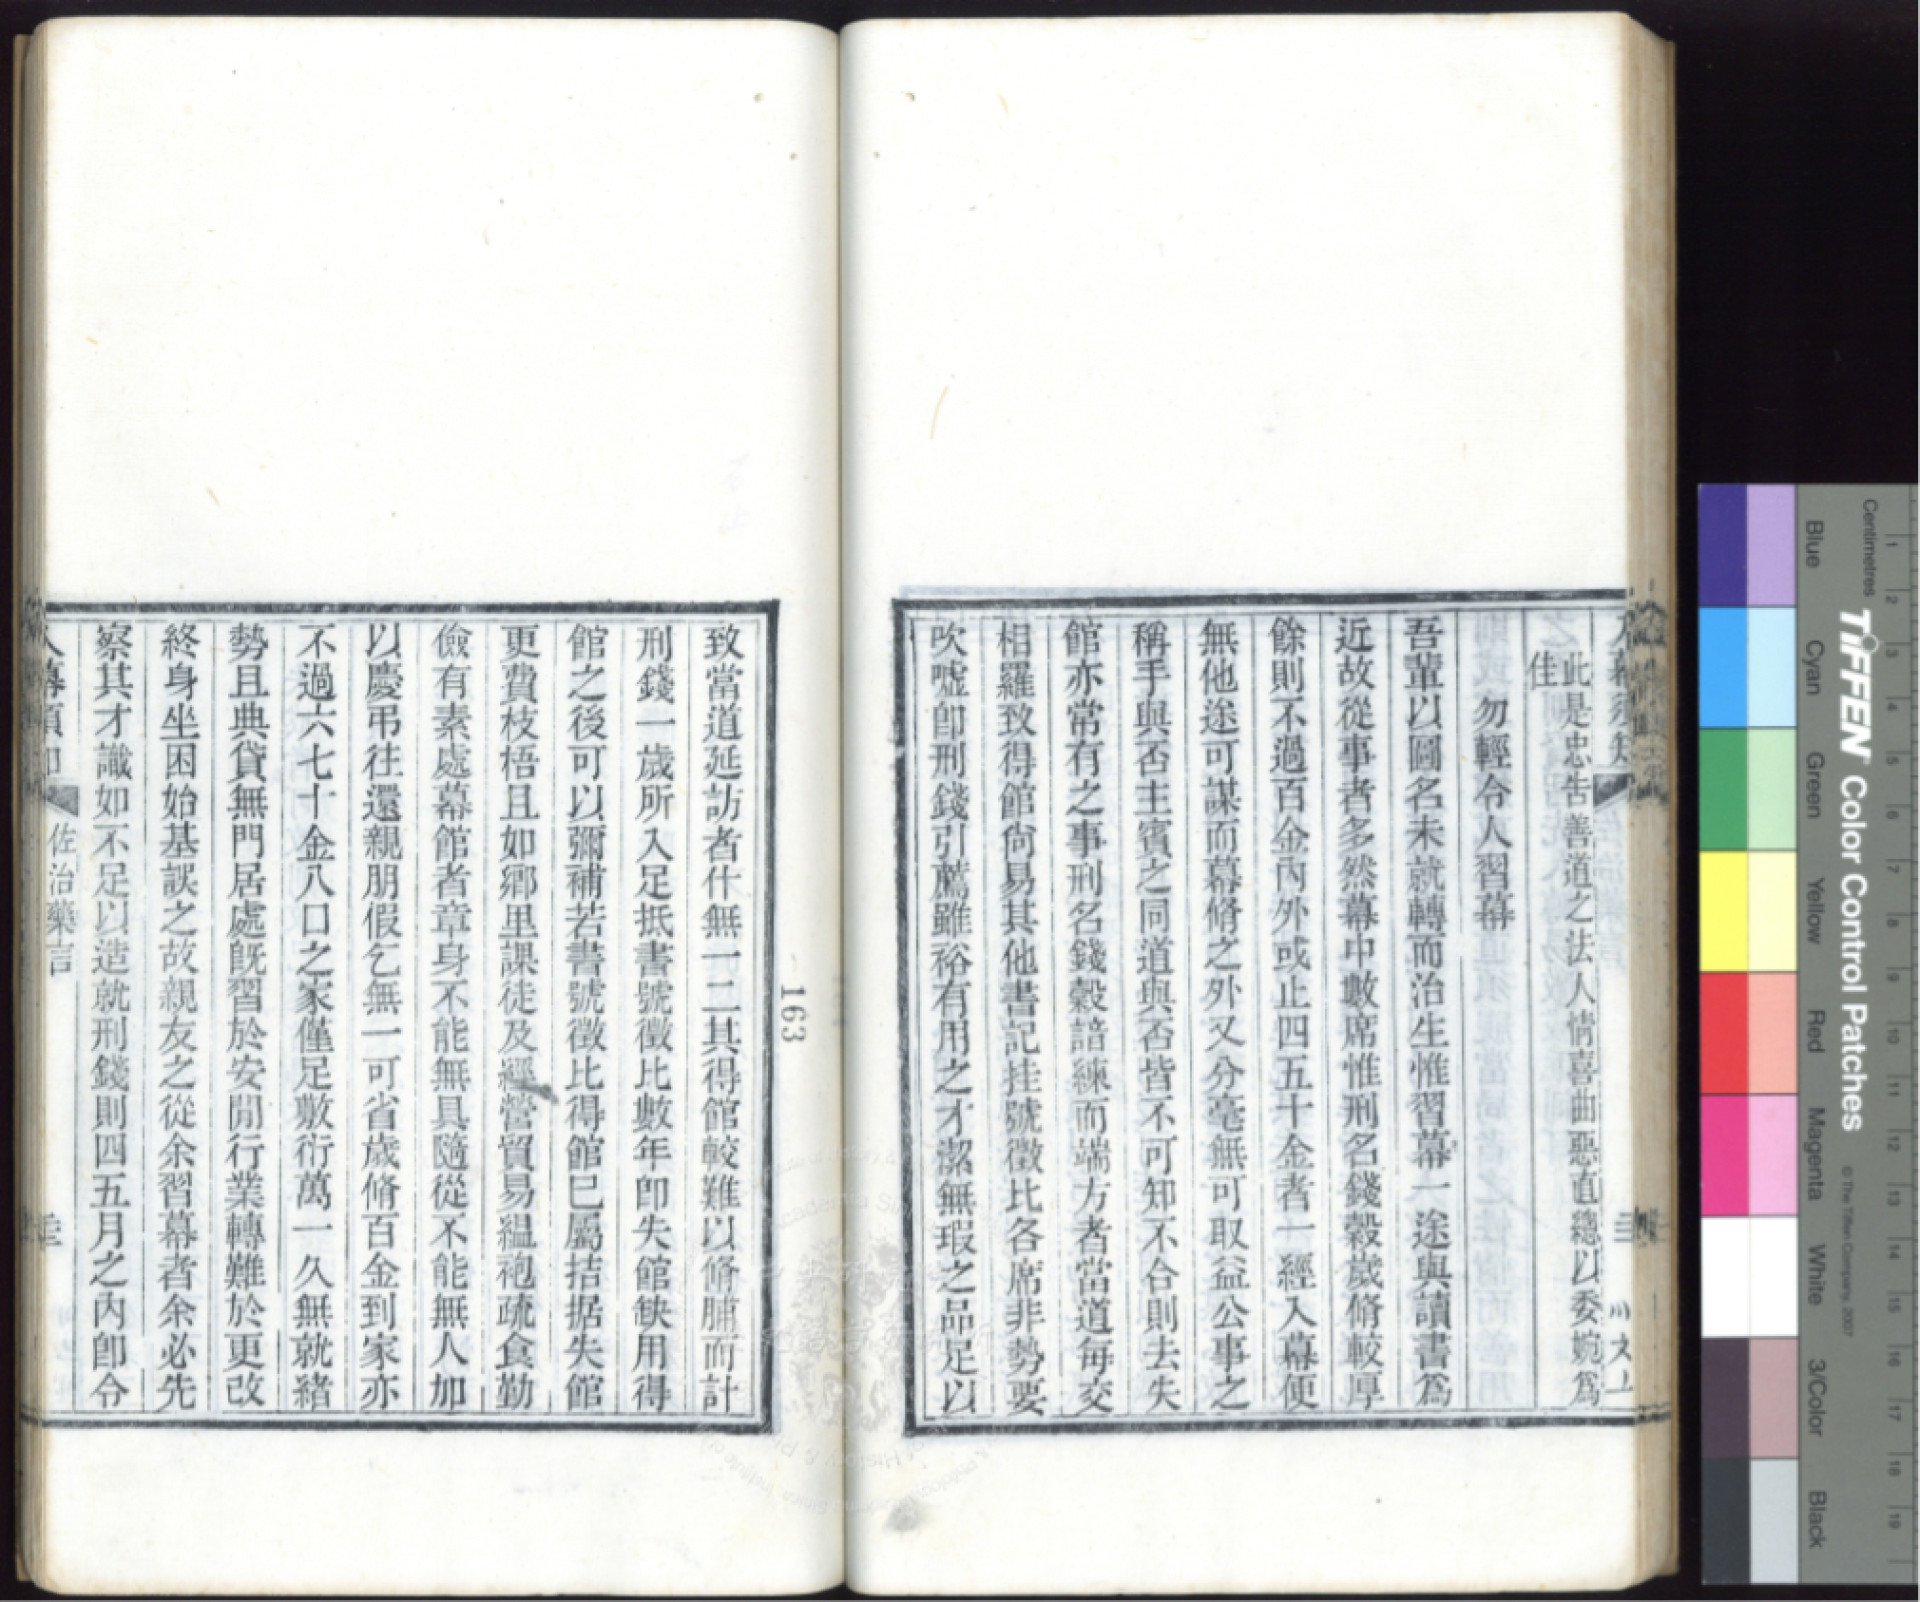 此是忠告善道之法人情喜曲惡直總以委婉爲
佳
勿輕令人習幕
吾輩以圖名未就轉而治生惟習幕一途與讀書爲
近故從事者多然幕中數席惟刑名錢穀歲脩較厚
餘則不過百金內外或止四五十金者一經入幕便
無他途可謀而幕脩之外又分毫無可取益公事之
稱手與否主賓之同道與否皆不可知不合則去失
館亦常有之事刑名錢穀諳練而端方者當道每交
相羅致得館尙易其他書記挂號徵比各席非勢要
吹噓卽刑錢引薦雖裕有用之才潔無瑕之品足以
163
致當道延訪者什無一二其得館較難以脩脯而計
刑錢一歲所入足抵書號徵比數年卽失館缺用得
館之後可以彌補若書號徵比得館已屬拮据失館
更費枝梧且如鄉里課徒及經營貿易縕袍疏食勤
儉有素處幕館者章身不能無具隨從不能無人加
以慶弔往還親朋假乞無一可省歲脩百金到家亦
不過六七十金八口之家僅足敷衍萬一久無就緒
勢且典貸無門居處旣習於安閒行業轉難於更改
終身坐困始基誤之故親友之從余習幕者余必先
察其才識如不足以造就刑錢則四五月之內卽令
佐治藥言
Centimetres
TIFFEN Color Control Patches
© The Tiffen Company, 2007
Blue
Cyan
Green
Yellow
Red
Magenta
White
3/Color
Black
1
2
3
4
5
6
7
8
9
10
11
12
13
14
15
16
17
18
19